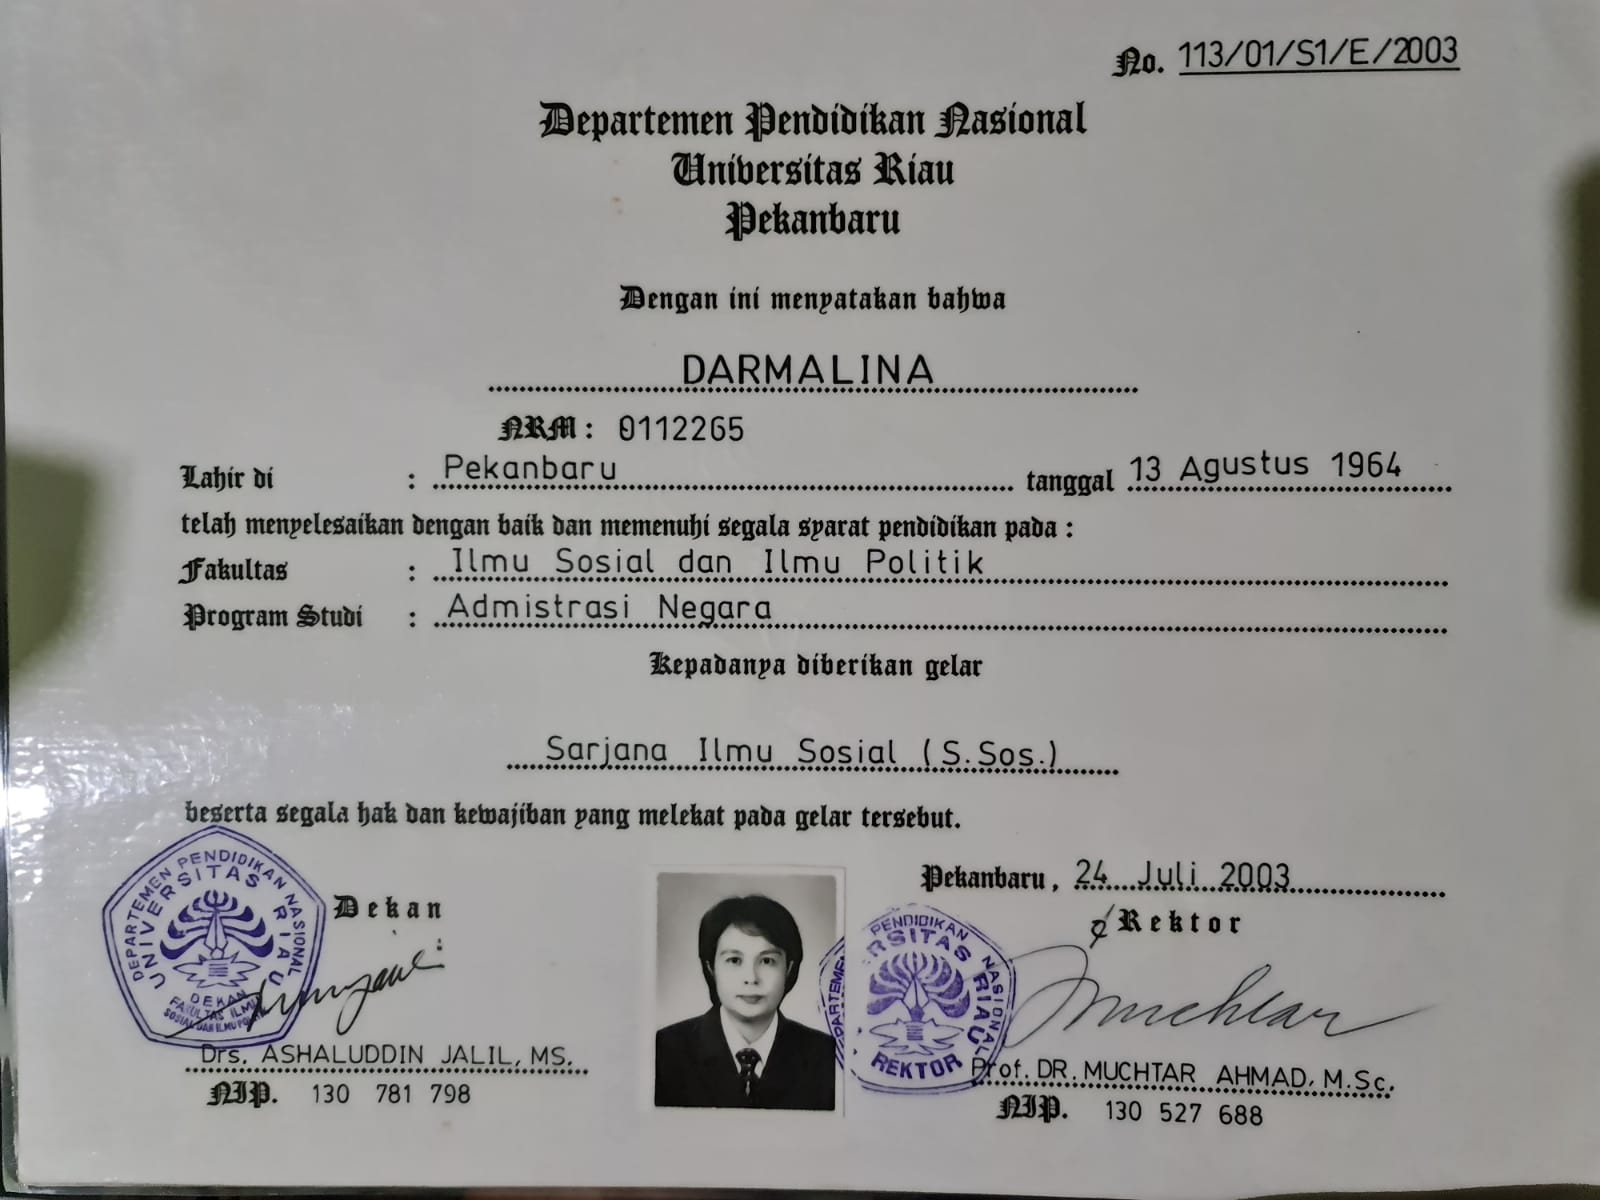 No. 113/01/S1/E/2003
Departemen Pendidikan Nasional
Universitas Riau
Pekanbaru
Dengan ini menyatakan bahwa
DARMALINA
NRM : 0112265
Lahir di : Pekanbaru tanggal 13 Agustus 1964
telah menyelesaikan dengan baik dan memenuhi segala syarat pendidikan pada :
Fakultas : Ilmu Sosial dan Ilmu Politik
Program Studi : Admistrasi Negara
Kepadanya diberikan gelar
Sarjana Ilmu Sosial (S.Sos.)
beserta segala hak dan kewajiban yang melekat pada gelar tersebut.
Pekanbaru, 24 Juli 2003
Dekan
Rektor
DEPARTEMEN PENDIDIKAN NASIONAL
UNIVERSITAS RIAU
DEKAN
FAKULTAS ILMU
SOSIAL DAN ILMU POLITIK
PENDIDIKAN NASIONAL
RSITAS RIAU
REKTOR
Muchtar
Drs. ASHALUDDIN JALIL, MS.
NIP. 130 781 798
Prof. DR. MUCHTAR AHMAD, M.Sc.
NIP. 130 527 688